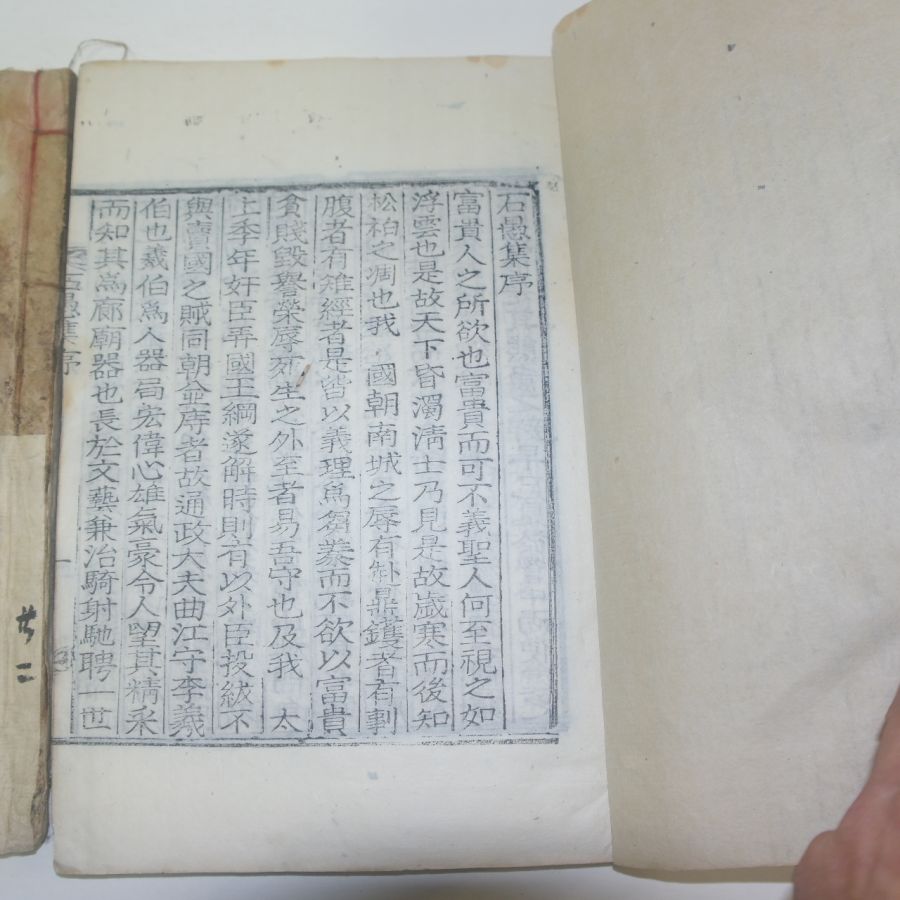 石愚集序
富貴人之所欲也富貴而可不義聖人何至視之如
浮雲也是故天下昏濁淸士乃見是故歲寒而後知
松柏之凋也我 國朝南城之辱有赴鼎鑊者有剚
腹者有雉經者是皆以義理爲芻豢而不欲以富貴
貪賤毀譽榮辱死生之外至者易吾守也及我 太
上季年奸臣弄國王綱遂解時則有以外臣投紱不
與賣國之賊同朝並庤者故通政大夫曲江守李羲
伯也羲伯爲人器局宏偉心雄氣豪令人望其精采
而知其爲廊廟器也長於文藝兼治騎射馳聘一世
石愚集序
一
共二